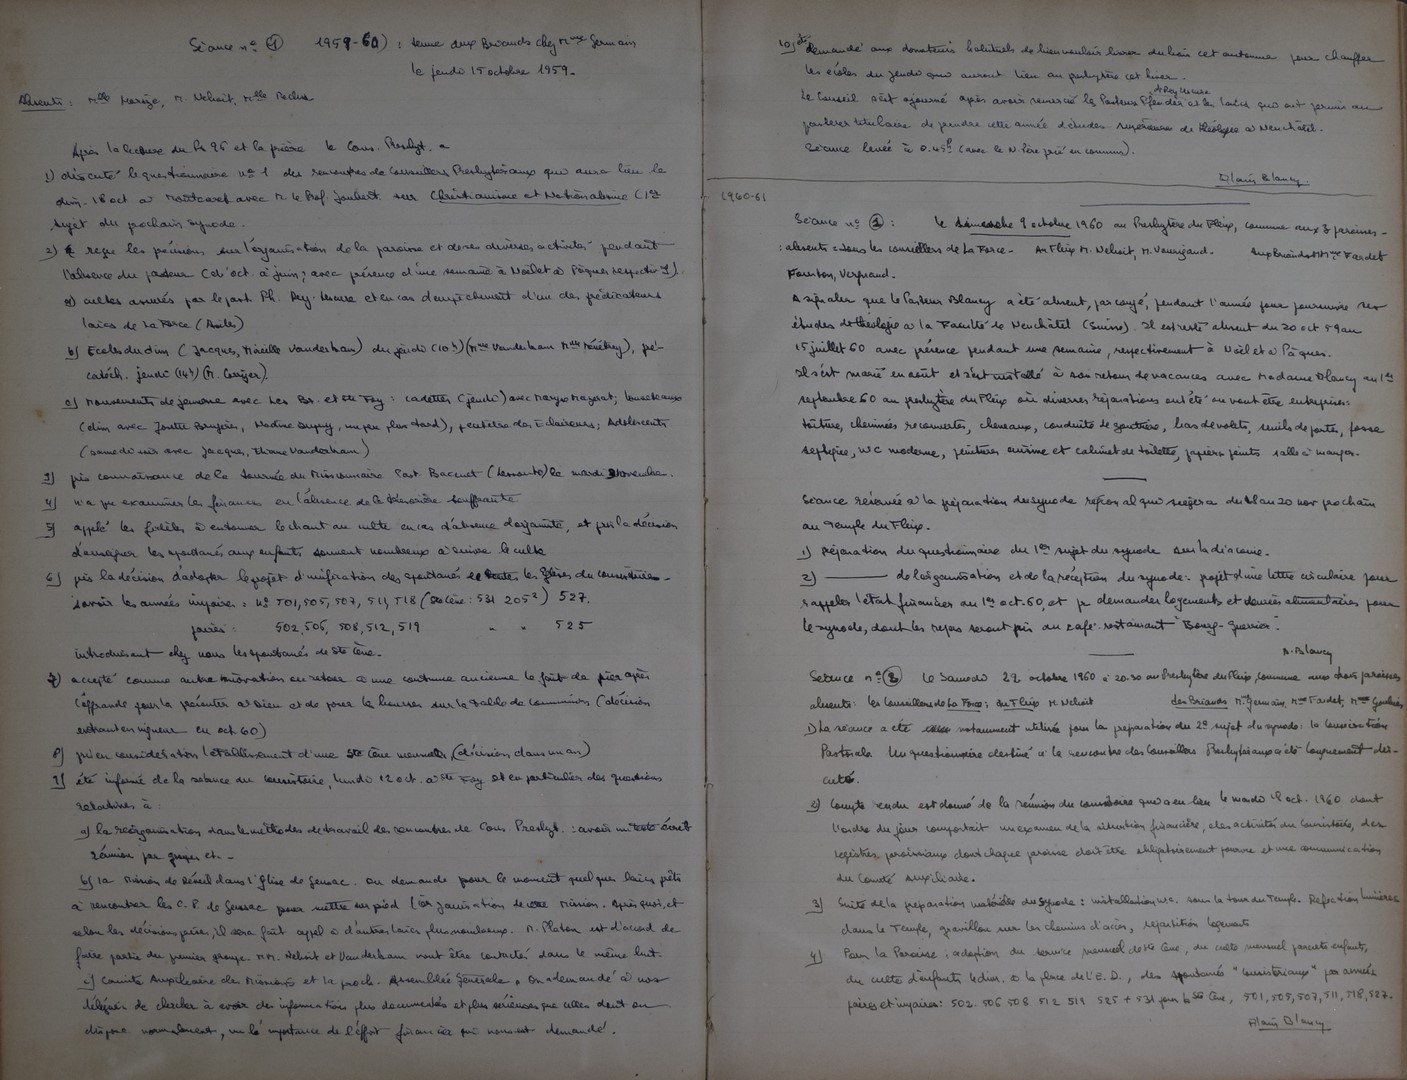 Séance n° 1 1959-60) : tenue aux Briands chez Mme Germain
le jeudi 15 octobre 1959.
Absents : Mlle M. Nehoit, Mlle
Après la lecture du Ps 96 et la prière le Cons. Presbyt. a
1) discuté le questionnaire n° 1 des rencontres de Conseillers Presbytéraux qui aura lieu le
dim. 18 oct a Montcaret avec M. le Prof. Joubert sur Christianisme et Nationalisme (1er
sujet du prochain synode.
2) reçu les précisions sur l'organisation de la paroisse et de ses diverses activités pendant
l'absence du pasteur (d'oct. à juin ; avec présence d'une semaine à Noël et à Pâques respectiv.t).
a) cultes assurés par le past. Ph. Rey-Lescure et en cas d'empêchement d'un des prédicateurs
laïcs de La Force (Asiles)
b) Ecoles du dim (Jacques, Mireille Vanderham) du jeudi (10h) (Mme Vanderham Mme ), pré-
catéch. jeudi (14h) (M. ).
c) Mouvements de jeunesse avec Les Br. et Ste Foy : cadettes (jeudi) avec ; louveteaux
(dim avec , Nadine Dupuy, un peu plus tard), Eclaireurs ; Adolescents
(samedi soir avec Jacques, Eliane Vanderham)
3) pris connaissance de la tournée du Missionnaire Past. (Lessouto) le mardi novembre.
4) n'a pu examiner les finances en l'absence de la trésorière souffrante
5) appelé les fidèles à entonner le chant au culte en cas d'absence d'organiste, et pris la décision
d'enseigner les spontanés aux enfants souvent nombreux à suivre le culte
6) pris la décision d'adopter le projet d'unification des spontanés les Eglises du consistoire -
savoir les années impaires : n° 501, 505, 507, 511, 518 (Ste Cène : 531 205²) 527.
paires : 502, 506, 508, 512, 519 " " 525
introduisant chez nous les spontanés de Ste Cène.
7) accepté comme autre innovation ou retour à une coutume ancienne le fait de prier après
l'offrande pour la présenter à Dieu et de poser la bourse sur la table de communion (décision
entrant en vigueur en oct 60)
8) pris en considération l'établissement d'une Ste Cène mensuelle (décision dans un an)
9) été informé de la séance du consistoire, lundi 12 oct. à Ste Foy et en particulier des questions
relatives à :
a) la réorganisation dans les méthodes de travail des rencontres de Cons. Presbyt. : avoir un texte écrit
réunion par groupes etc -
b) la Mission de Réveil dans l'Eglise de Gensac. On demande pour le moment quelques laïcs prêts
à rencontrer les C.P. de Gensac pour mettre sur pied l'organisation de cette Mission. Après quoi, et
selon les décisions prises, il sera fait appel à d'autres laïcs plus nombreux. M. Platon est d'accord de
faire partie du premier groupe. MM. Nehoit et Vanderham vont être contactés dans le même but.
c) Comité Auxiliaire des Missions et la proch. Assemblée Générale. On a demandé à nos
délégués de chercher à avoir des informations plus documentées et plus sérieuses que celles dont on
dispose normalement, vu l'importance de l'effort financier qui nous est demandé.
10) demandé aux donateurs habituels de bien vouloir livrer du bois cet automne pour chauffer
les écoles du jeudi qui auront lieu au presbytère cet hiver.
Le Conseil s'est ajourné après avoir remercié les Pasteurs Pfender et Rey Lescure et les laïcs qui ont permis au
pasteur titulaire de prendre cette année d'études supérieures de théologie à Neuchâtel.
Séance levée à 0.45h (avec le N. Père prié en commun).
Alain Blancy.
1960-61
Séance n° 1 : le dimanche 9 octobre 1960 au Presbytère du Fleix, commune aux 3 paroisses -
: absents : tous les conseillers de La Force - au Fleix M. Nehoit, M. . Aux Briands MMme Fardet
, Vergnaud.
A signaler que le Pasteur Blancy a été absent, par congé, pendant l'année pour poursuivre ses
études de théologie à la Faculté de Neuchâtel (Suisse). Il est resté absent du 20 oct 59 au
15 juillet 60 avec présence pendant une semaine, respectivement à Noël et à Pâques.
Il s'est marié en août et s'est installé à son retour de vacances avec Madame Blancy au 1er
septembre 60 au presbytère du Fleix où diverses réparations ont été ou vont être entreprises :
toiture, cheminées recouvertes, chéneaux, conduite de gouttière, bas de volets, seuils de portes, fosse
septique, wc moderne, peintures cuisine et cabinet de toilette, papiers peints salle à manger.
Séance réservée à la préparation du synode régional qui siègera du 18 au 20 nov prochain
au Temple du Fleix.
1) Préparation du questionnaire du 1er sujet du synode sur la diaconie.
2) ——— de l'organisation et de la réception du synode : projet d'une lettre circulaire pour
rappeler l'état financier au 1er oct. 60, et pr demander logements et denrées alimentaires pour
le synode, dont les repas seront pris au café-restaurant "Bourg-Guerrier".
A. Blancy
Séance n° 2 le Samedi 22 octobre 1960 à 20.30 au Presbytère du Fleix, commune aux trois paroisses
absents : les Conseillers de La Force ; au Fleix M. Nehoit les Briands Mme Germain, Mme Fardet, Mme
1) La séance a été notamment utilisée pour la préparation du 2e sujet du synode : la Consécration
Pastorale. Un questionnaire destiné à la rencontre des Conseillers Presbytéraux a été longuement dis-
cuté.
2) Compte rendu est donné de la réunion du consistoire qui a eu lieu le mardi oct. 1960 dont
l'ordre du jour comportait un examen de la situation financière, des activités du Consistoire, des
registres paroissiaux dont chaque paroisse doit être obligatoirement pourvue et une communication
du Comité Auxiliaire.
3) Suite de la préparation matérielle du Synode : installation w.c. sous la tour du Temple. Réfection lumières
dans le Temple, gravillon sur les chemins d'accès, répartition logements
4) Pour la Paroisse : adoption du service mensuel de Ste Cène, du culte mensuel parents enfants,
du culte d'enfants à la place de l'E.D., des spontanés "consistoriaux" par années
paires et impaires : 502. 506 508 512 519 525 + 531 pour la Ste Cène, 501, 505, 507, 511, 518, 527.
Alain Blancy